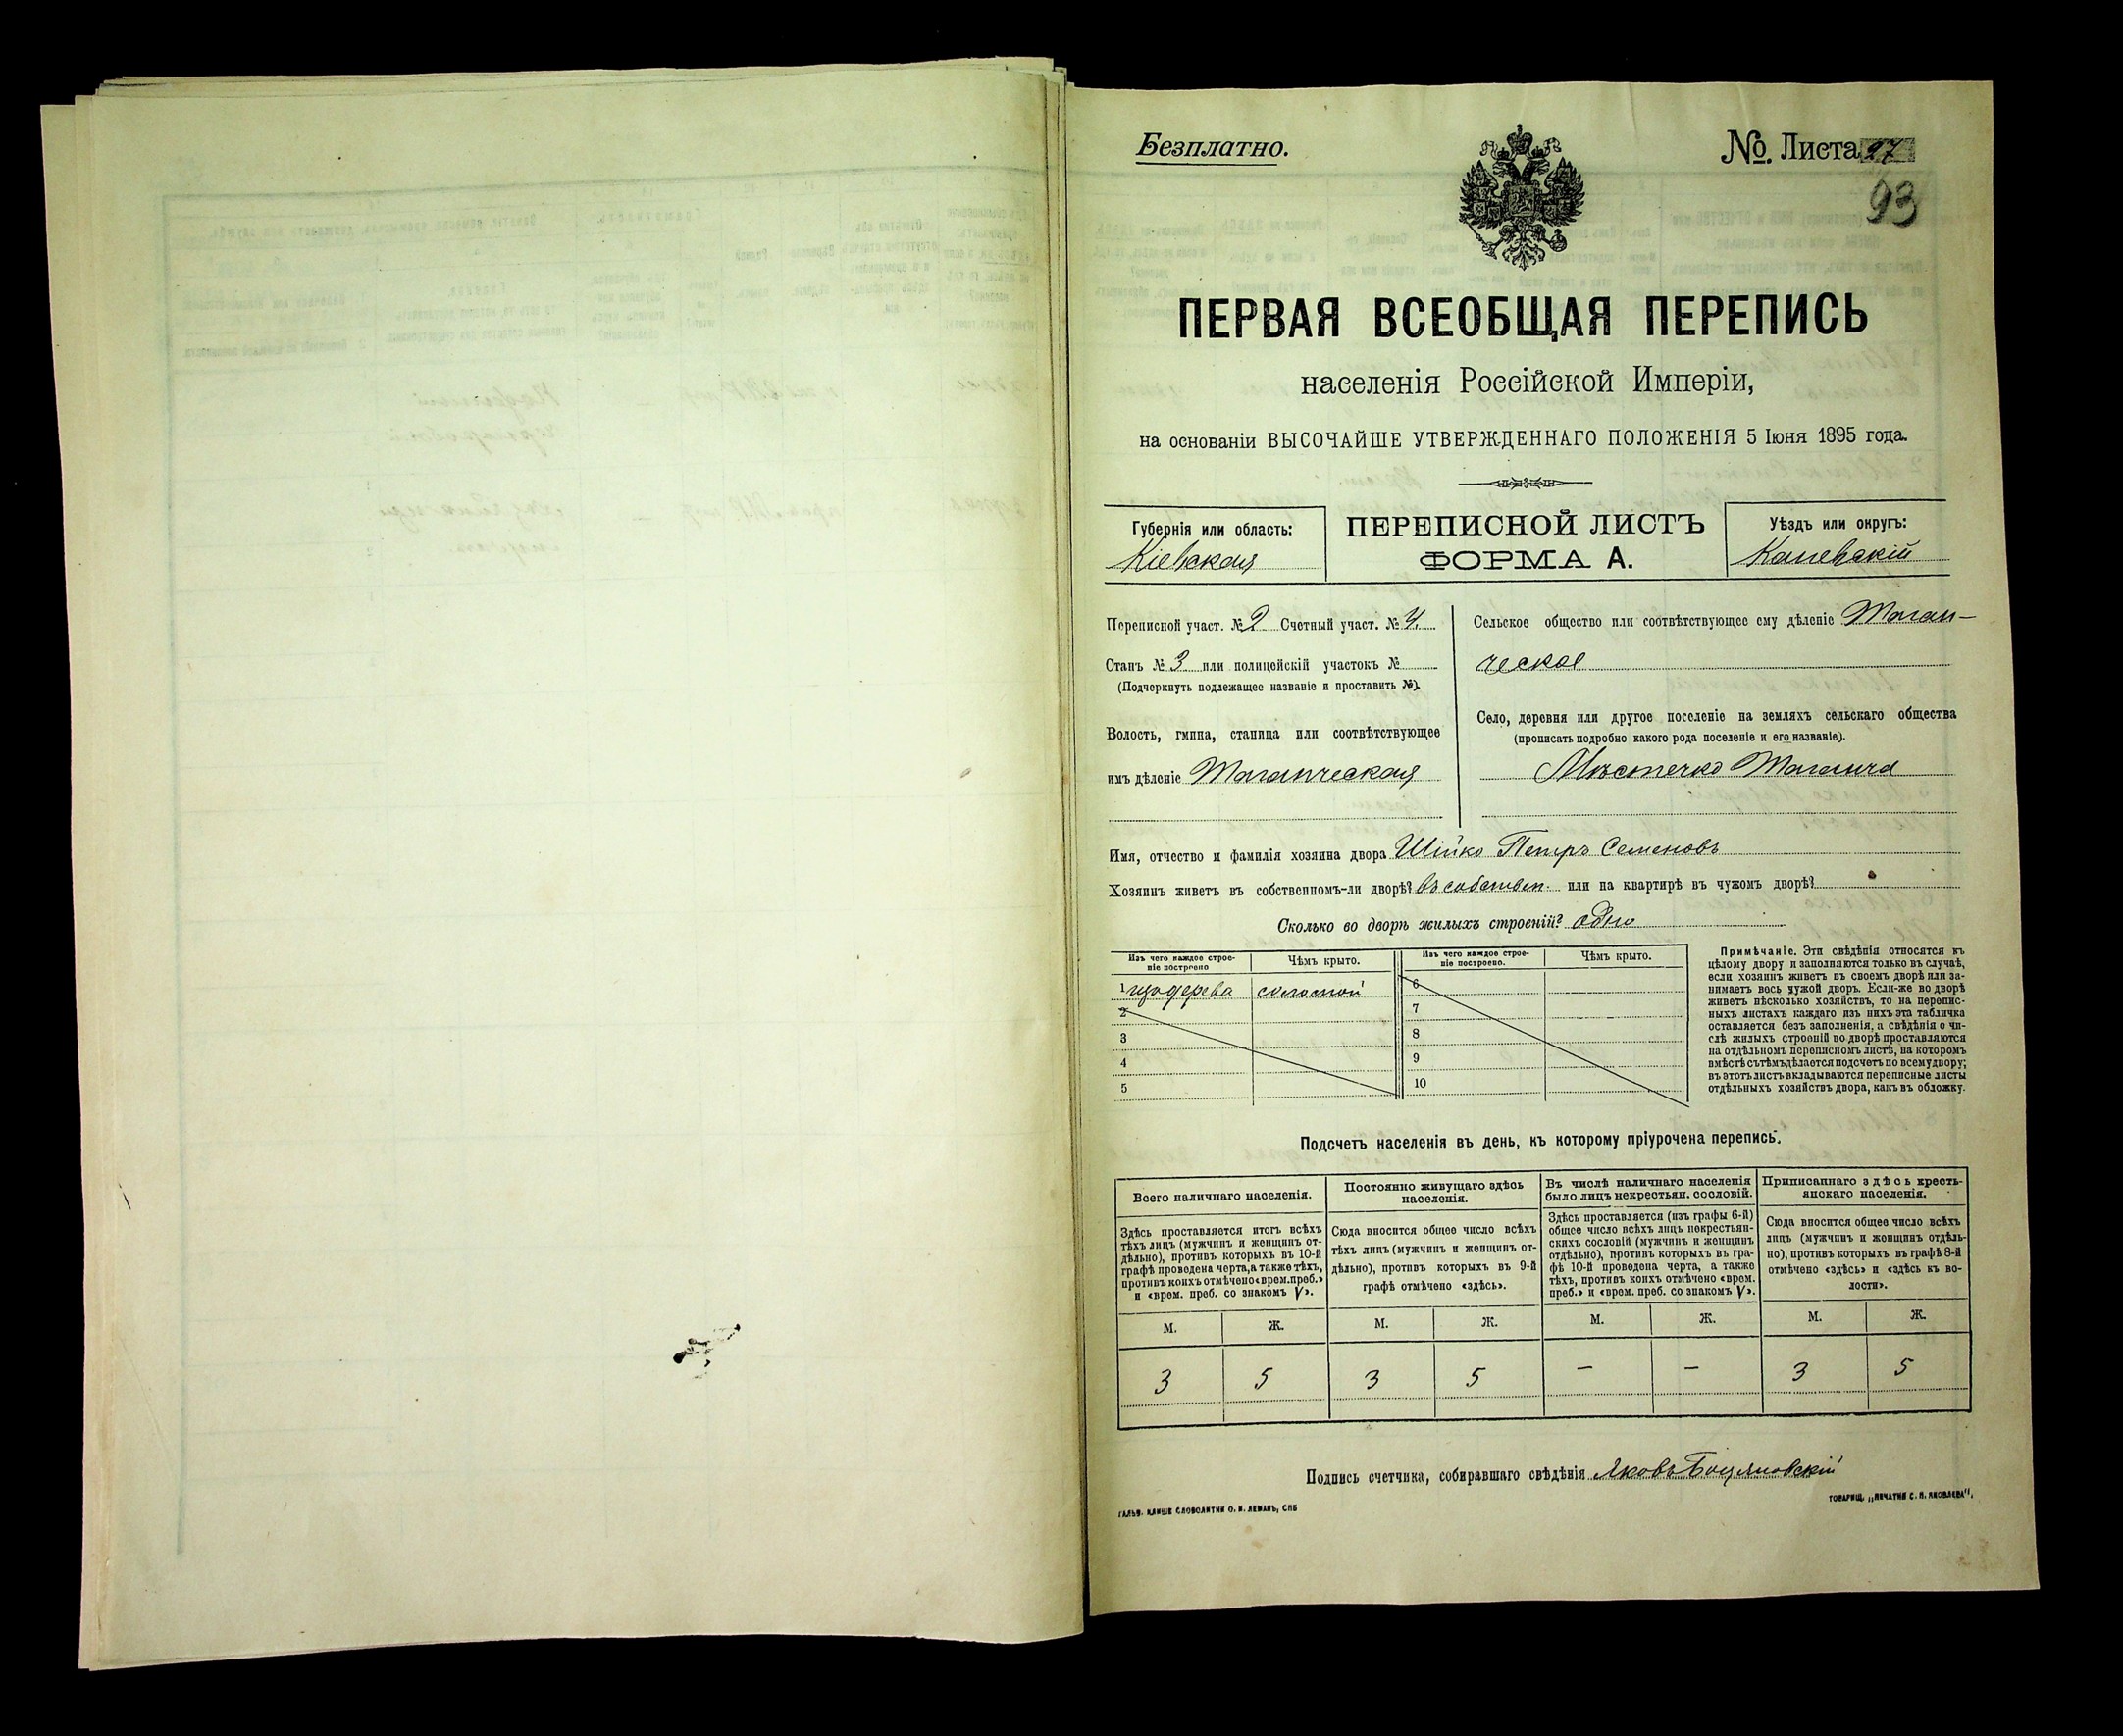 Безплатно.
№. Листа 27
93
ПЕРВАЯ ВСЕОБЩАЯ ПЕРЕПИСЬ
населенія Россійской Имперіи,
на основаніи ВЫСОЧАЙШЕ УТВЕРЖДЕННАГО ПОЛОЖЕНІЯ 5 Іюня 1895 года.
Губернія или область:
Кіевская
ПЕРЕПИСНОЙ ЛИСТЪ
ФОРМА А.
Уѣздъ или округъ:
Каневскій
Переписной участ. № 2 Счетный участ. № 4.
Станъ № 3 или полицейскій участокъ №
(Подчеркнуть подлежащее названіе и проставить №).
Волость, гмина, станица или соотвѣтствующее
имъ дѣленіе Таганческая
Сельское общество или соотвѣтствующее ему дѣленіе Таган-
ческое
Село, деревня или другое поселеніе на земляхъ сельскаго общества
(прописать подробно какого рода поселеніе и его названіе).
Мѣстечко Таганча
Имя, отчество и фамилія хозяина двора Шійко Петръ Семеновъ
Хозяинъ живетъ въ собственномъ-ли дворѣ? въ собствен. или на квартирѣ въ чужомъ дворѣ?
Сколько во дворѣ жилыхъ строеній? одно
Изъ чего каждое строе-
ніе построено
Чѣмъ крыто.
Изъ чего каждое строе-
ніе построено.
Чѣмъ крыто.
1 изъ дерева соломой
2
3
4
5
6
7
8
9
10
Примѣчаніе. Эти свѣдѣнія относятся къ
цѣлому двору и заполняются только въ случаѣ,
если хозяинъ живетъ въ своемъ дворѣ или за-
нимаетъ весь чужой дворъ. Если-же во дворѣ
живетъ нѣсколько хозяйствъ, то на перепис-
ныхъ листахъ каждаго изъ нихъ эта табличка
оставляется безъ заполненія, а свѣдѣнія о чи-
слѣ жилыхъ строеній во дворѣ проставляются
на отдѣльномъ переписномъ листѣ, на которомъ
вмѣстѣ съ тѣмъ дѣлается подсчетъ по всему двору;
въ этотъ листъ вкладываются переписные листы
отдѣльныхъ хозяйствъ двора, какъ въ обложку.
Подсчетъ населенія въ день, къ которому пріурочена перепись.
Всего наличнаго населенія.
Постоянно живущаго здѣсь
населенія.
Въ числѣ наличнаго населенія
было лицъ некрестьян. сословій.
Приписаннаго здѣсь кресть-
янскаго населенія.
Здѣсь проставляется итогъ всѣхъ
тѣхъ лицъ (мужчинъ и женщинъ от-
дѣльно), противъ которыхъ въ 10-й
графѣ проведена черта, а также тѣхъ,
противъ коихъ отмѣчено «врем. преб.»
и «врем. преб. со знакомъ V».
Сюда вносится общее число всѣхъ
тѣхъ лицъ (мужчинъ и женщинъ от-
дѣльно), противъ которыхъ въ 9-й
графѣ отмѣчено «здѣсь».
Здѣсь проставляется (изъ графы 6-й)
общее число всѣхъ лицъ некрестьян-
скихъ сословій (мужчинъ и женщинъ
отдѣльно), противъ которыхъ въ гра-
фѣ 10-й проведена черта, а также
тѣхъ, противъ коихъ отмѣчено «врем.
преб.» и «врем. преб. со знакомъ V».
Сюда вносится общее число всѣхъ
лицъ (мужчинъ и женщинъ отдѣль-
но), противъ которыхъ въ графѣ 8-й
отмѣчено «здѣсь» и «здѣсь къ во-
лости».
М. Ж. М. Ж. М. Ж. М. Ж.
3 5 3 5 — — 3 5
Подпись счетчика, собиравшаго свѣдѣнія Яковъ Боцяновскій
ГАЛЬВ. КЛИШЕ СЛОВОЛИТНИ О. И. ЛЕМАНЪ, СПБ
ТОВАРИЩ. „ПЕЧАТНЯ С. П. ЯКОВЛЕВА“.